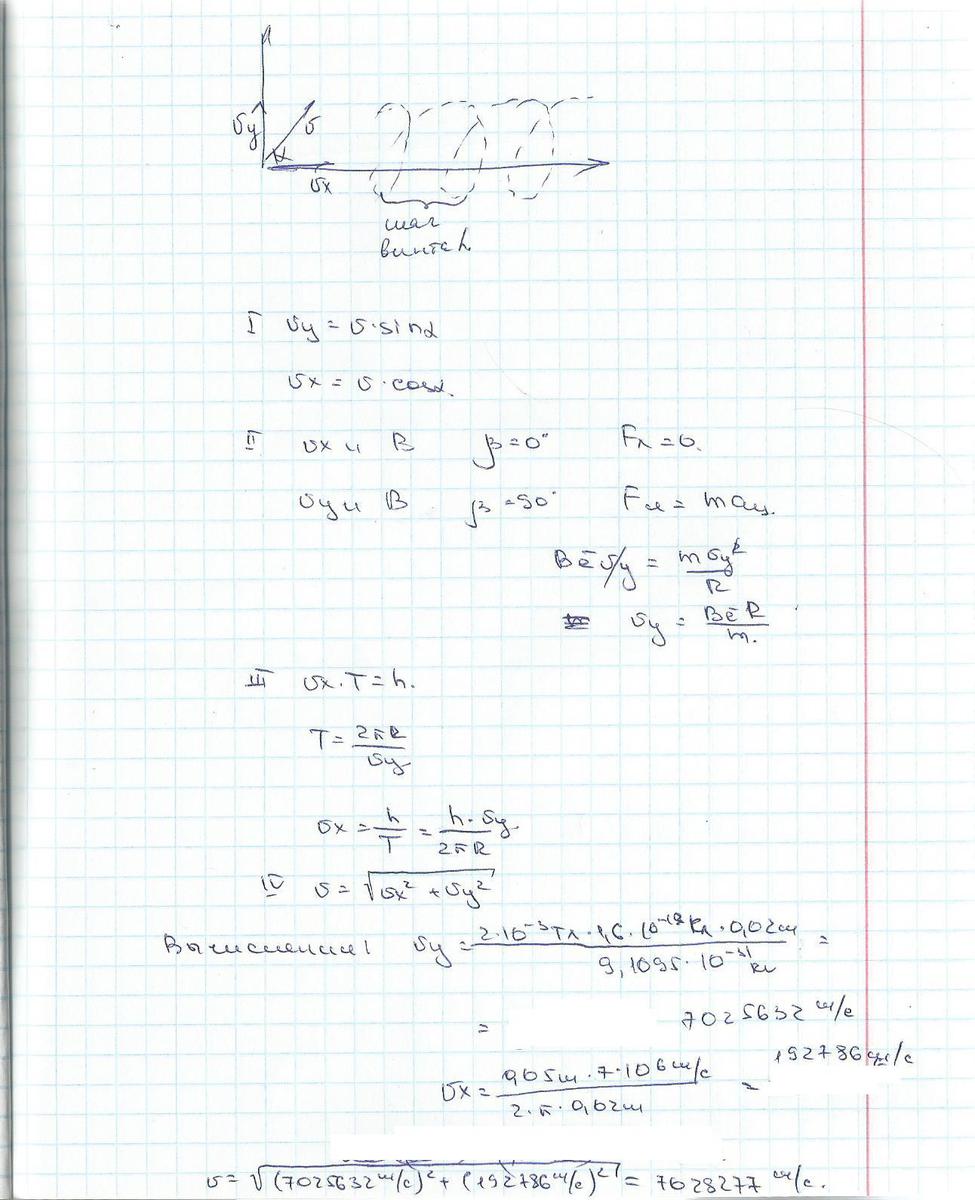 υy
υ
α
υx
шаг
винта h.
I υy = υ·sinα
υx = υ·cosα.
II υx и B β=0° Fл=0.
υy и B β=90° Fл = maц.
Bēυy = mυy²/R
υy = BēR/m.
III υx·T=h.
T = 2πR/υy
υx = h/T = h·υy/2πR
IV υ = √υx² + υy²
Вычисления: υy = 2·10⁻³Тл·1,6·10⁻¹⁹Кл·0,02м/9,1095·10⁻³¹кг =
= 7025632 м/с
υx = 0,05м·7·10⁶м/с/2·π·0,02м = 192786 м/с
υ = √(7025632 м/с)² + (192786 м/с)² = 7028277 м/с.